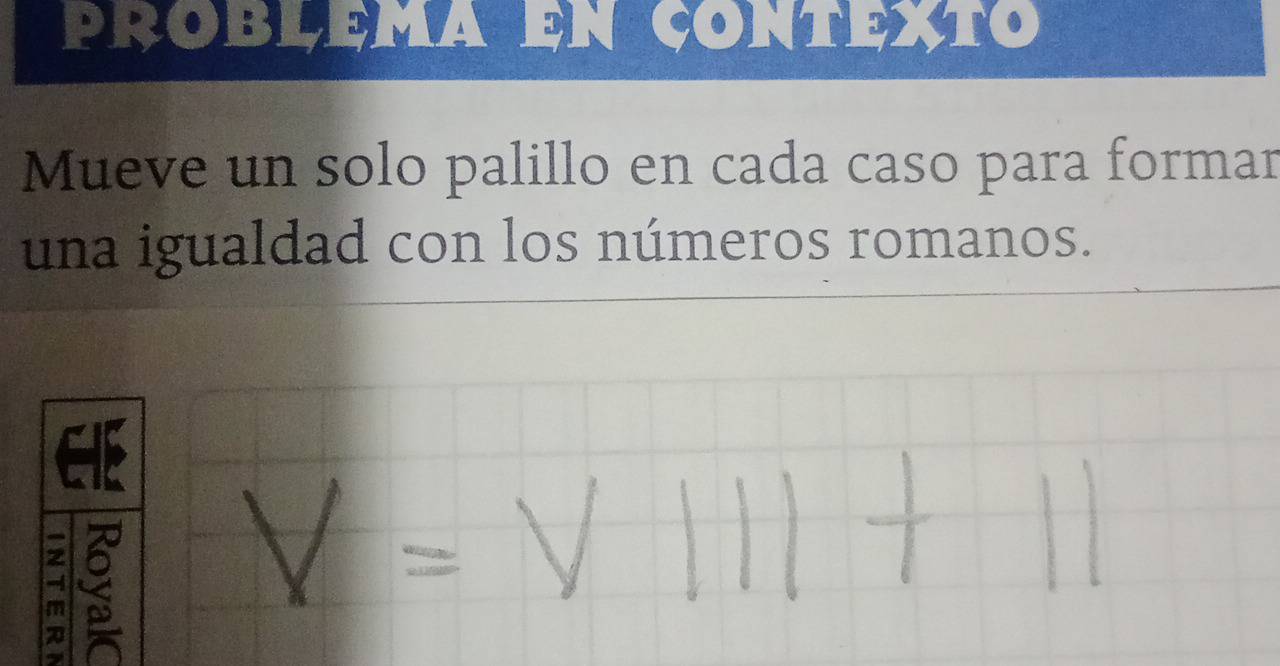 PROBLEMA EN CONTEXTO
Mueve un solo palillo en cada caso para formar
una igualdad con los números romanos.
V = V III + II
RoyalC
INTERN